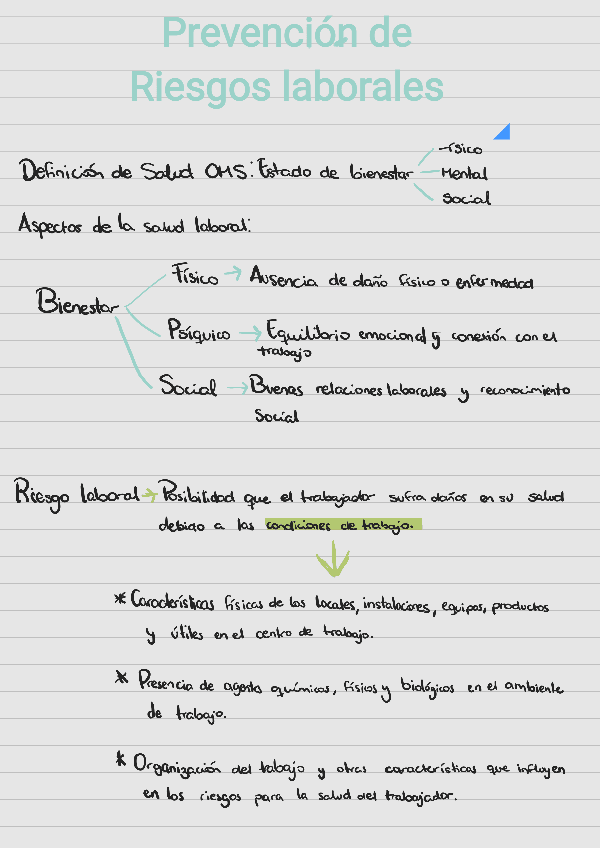 Prevención de
Riesgos laborales
Definición de Salud OMS: Estado de bienestar
Físico
Mental
Social
Aspectos de la salud laboral:
Bienestar
Físico → Ausencia de daño físico o enfermedad
Psíquico → Equilibrio emocional y conexión con el
trabajo
Social → Buenas relaciones laborales y reconocimiento
Social
Riesgo laboral → Posibilidad que el trabajador sufra daños en su salud
debido a las condiciones de trabajo.
* Características físicas de los locales, instalaciones, equipos, productos
y útiles en el centro de trabajo.
* Presencia de agentes químicos, físicos y biológicos en el ambiente
de trabajo.
* Organización del trabajo y otras características que influyen
en los riesgos para la salud del trabajador.